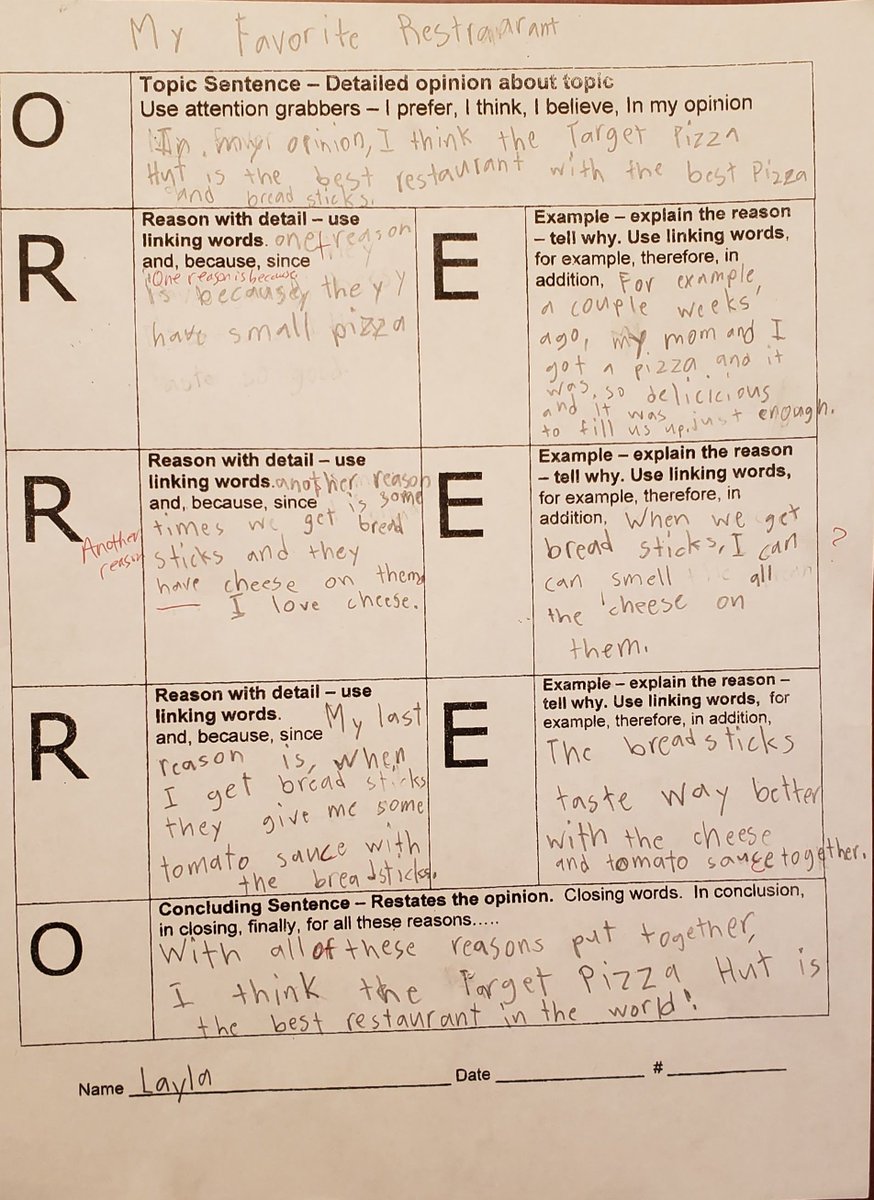 My Favorite Restraurant
O
Topic Sentence – Detailed opinion about topic
Use attention grabbers – I prefer, I think, I believe, In my opinion
In my opinion, I think the Target Pizza
Hut is the best restaurant with the best Pizza
and bread sticks.
R
Reason with detail – use
linking words. one reason
and, because, since they
One reason is because
is because they
have small pizza
E
Example – explain the reason
– tell why. Use linking words,
for example, therefore, in
addition, For example,
a couple weeks
ago, my mom and I
got a pizza and it
was so delicicious
and it was just enough.
to fill us up.
R
Another
reason
Reason with detail – use
linking words. another reason
and, because, since is some
times we get bread
sticks and they
have cheese on them
I love cheese.
E
Example – explain the reason
– tell why. Use linking words,
for example, therefore, in
addition, When we get
bread sticks, I can ?
can smell all
the cheese on
them.
R
Reason with detail – use
linking words.
and, because, since My last
reason is, when
I get bread sticks
they give me some
tomato sauce with
the breadsticks.
E
Example – explain the reason –
tell why. Use linking words, for
example, therefore, in addition,
The breadsticks
taste way better
with the cheese
and tomato sauce together.
O
Concluding Sentence – Restates the opinion. Closing words. In conclusion,
in closing, finally, for all these reasons.....
With all of these reasons put together,
I think the Target Pizza Hut is
the best restaurant in the world!
Name Layla Date #